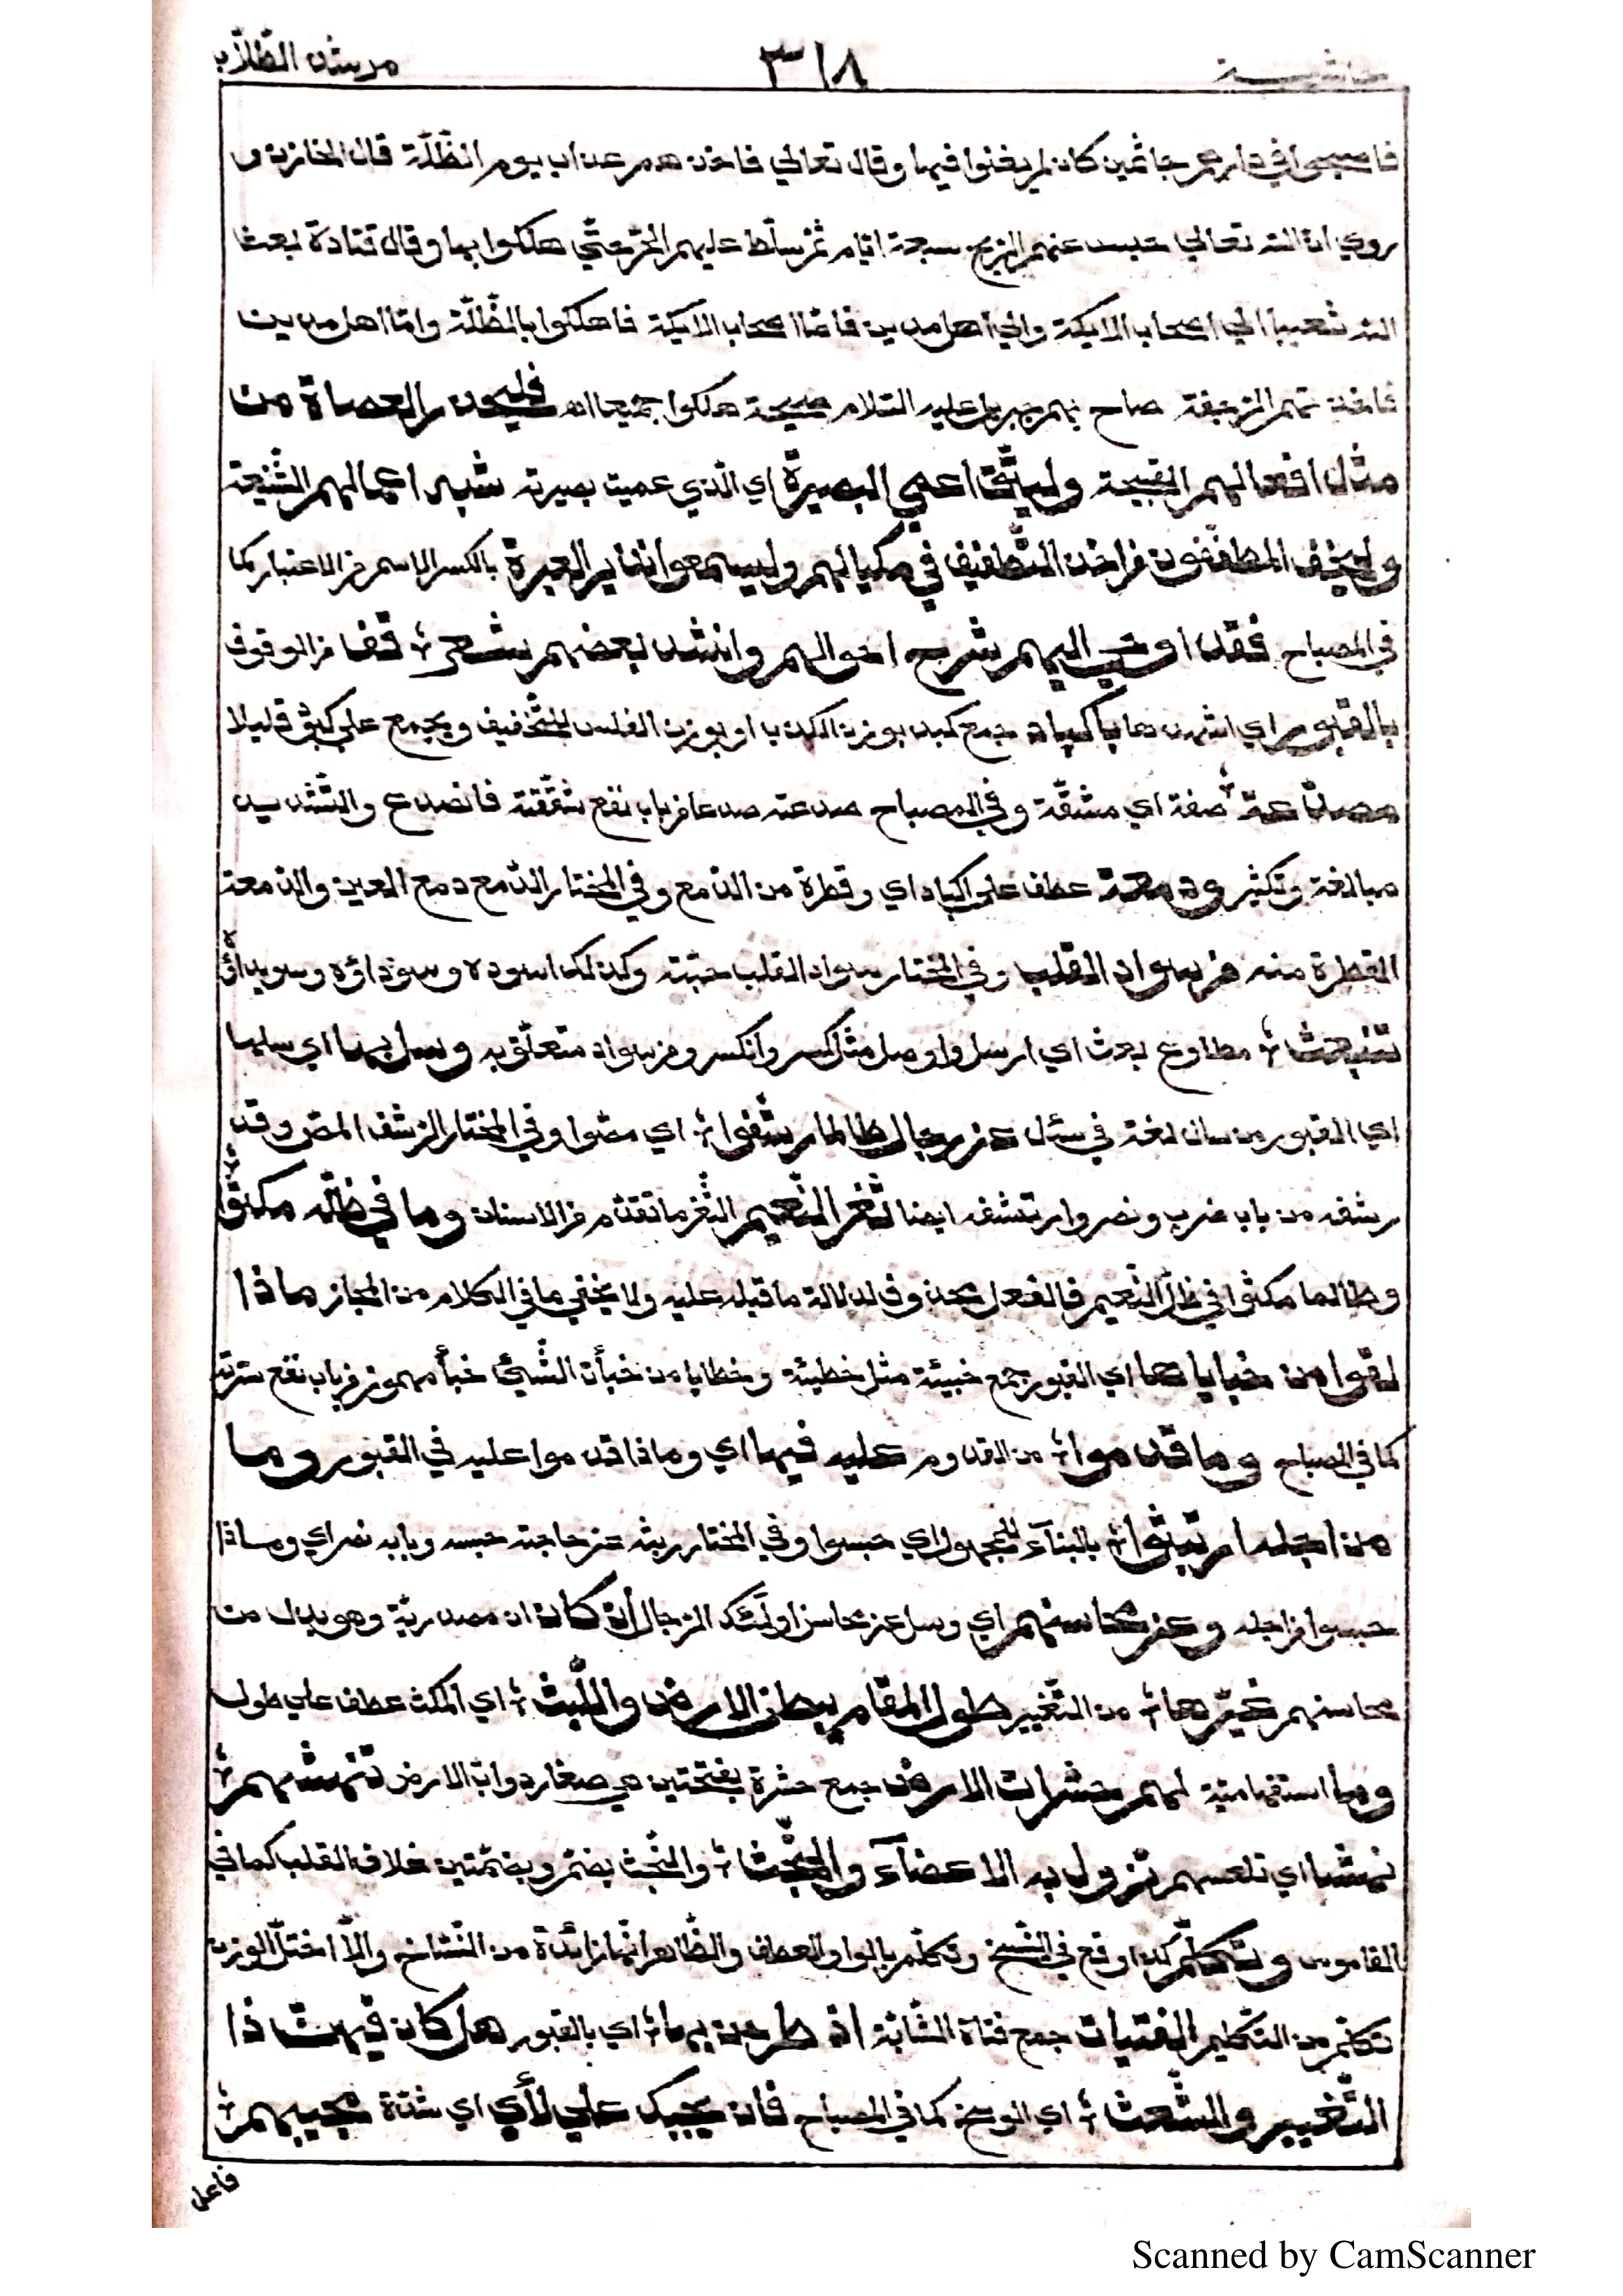 حاشية ٣١٨ مرشد الطلاب
فاصبحوا في دارهم جاثمين كان لم يغنوا فيها وقال تعالي فاخذهم عذاب يوم الظلّة قال الخازن و
روي ان الله تعالي حبس عنهم الريح سبعة ايّام ثمّ سلّط عليهم الحرّ حتّي هلكوا بها وقال قتادة بعث
الله شعيبا الي اصحاب الايكة والي اهل مدين فامّا اصحاب الايكة فاهلكوا بالظّلّة وامّا اهل مدين
فاخذتهم الرّجفة صاح بهم جبريل عليه السّلام صيحة هلكوا جميعا اه فليحذر العصاة من
مثل افعالهم القبيحة وليتّق اعمي البصيرة اي الّذي عميت بصيرته شبه اعمالهم الشّنيعة
وليخف المطفّفون من اخذ التّطفيف في مكيالهم وليسمعوا نذير العبرة بالكسر الاسم من الاعتبار كما
في المصباح فقد اوحي اليهم شرح احوالهم وانشد بعضهم شعر قفا من الوقوف
بالقبور اي اشهدها باكباد جمع كبد بوزن الكذب او بوزن الفلس للتّخفيف ويجمع علي كبود قليلا
مصدّعة صفة اي مشقّة وفي المصباح صدعته صدعا من باب نفع شقّقته فانصدع والتّشديد
مبالغة وتكثير ودمعة عطف علي اكباد اي وقطرة من الدّمع وفي المختار الدّمع دمع العين والدّمعة
القطرة منه من سواد القلب وفي المختار سواد القلب حبّته وكذلك اسوده وسوداؤه وسويداؤه
تنبعث مطاوع بعث اي ارسل واوصل مثل كسر وانكسر ومن سواد متعلّق به وسل بها اي سلها
اي القبور من سال لغة في سئل عن رجال طالما رشفوا اي مصّوا وفي المختار الرّشف المصّ وقد
رشفه من باب ضرب ونصر وارتشفه ايضا ثغر النّعيم الثّغر ما تقدّم من الاسنان وما في ظلّه مكثوا
وطالما مكثوا في ظلّ النّعيم فالفعل محذوف لدلالة ما قبله عليه ولا يخفي ما في الكلام من المجاز ماذا
لقوا من خباياها اي القبور جمع خبيئة مثل خطيئة وخطايا من خبأت الشّيئ خبأ مهموز من باب نفع سترته
كما في المصباح وما قدموا من القدوم عليه فيها اي وماذا قدموا عليه في القبور وما
من اجله ارتبثوا بالبنآء للمجهول اي حبسوا وفي المختار ربثه عن حاجته حبسه وبابه نصر اي وماذا
حبسوا من اجله وعن محاسنهم اي وسل عن محاسن اولئك الرّجال ان كان ان مصدريّة وهو بدل من
محاسنهم غيّرها من التّغيير طول المقام ببطن الارض واللّبث اي المكث عطف علي طول
وما استفهاميّة لهم حشرات الارض جمع حشرة بفتحتين هي صغار دوابّ الارض تنهشهم
نهشا اي تلسعهم تزول به الاعضآء والجثث والجثث بضمّ وبضمّتين غلاف القلب كما في
القاموس وتكلّم كذا وقع في النّسخ وتكلّم بالواو والعطف والظّاهر انّها زائدة من النّسّاخ والّا اختلّ الوزن
تكلّم من التّكليم الفتيات جمع فتاة الشّابّة اذ طرحن بها اي بالقبور هل كان فيهنّ ذا
التّغيير والشّعث اي الوسخ كما في المصباح فان يجبك علي لأي اي شدّة مجيبهم
فاعل
Scanned by CamScanner